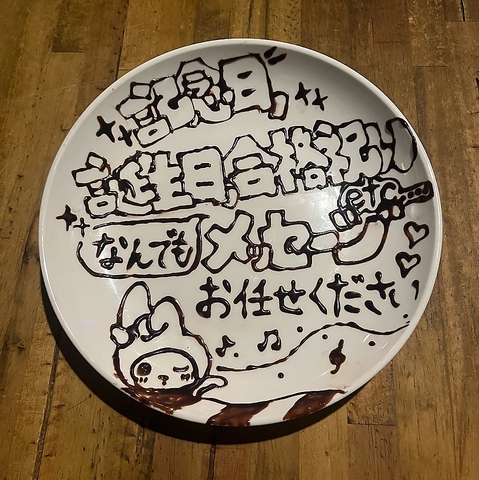 記念日、
誕生日、合格祝い
etc...
なんでも メッセージ
お任せください